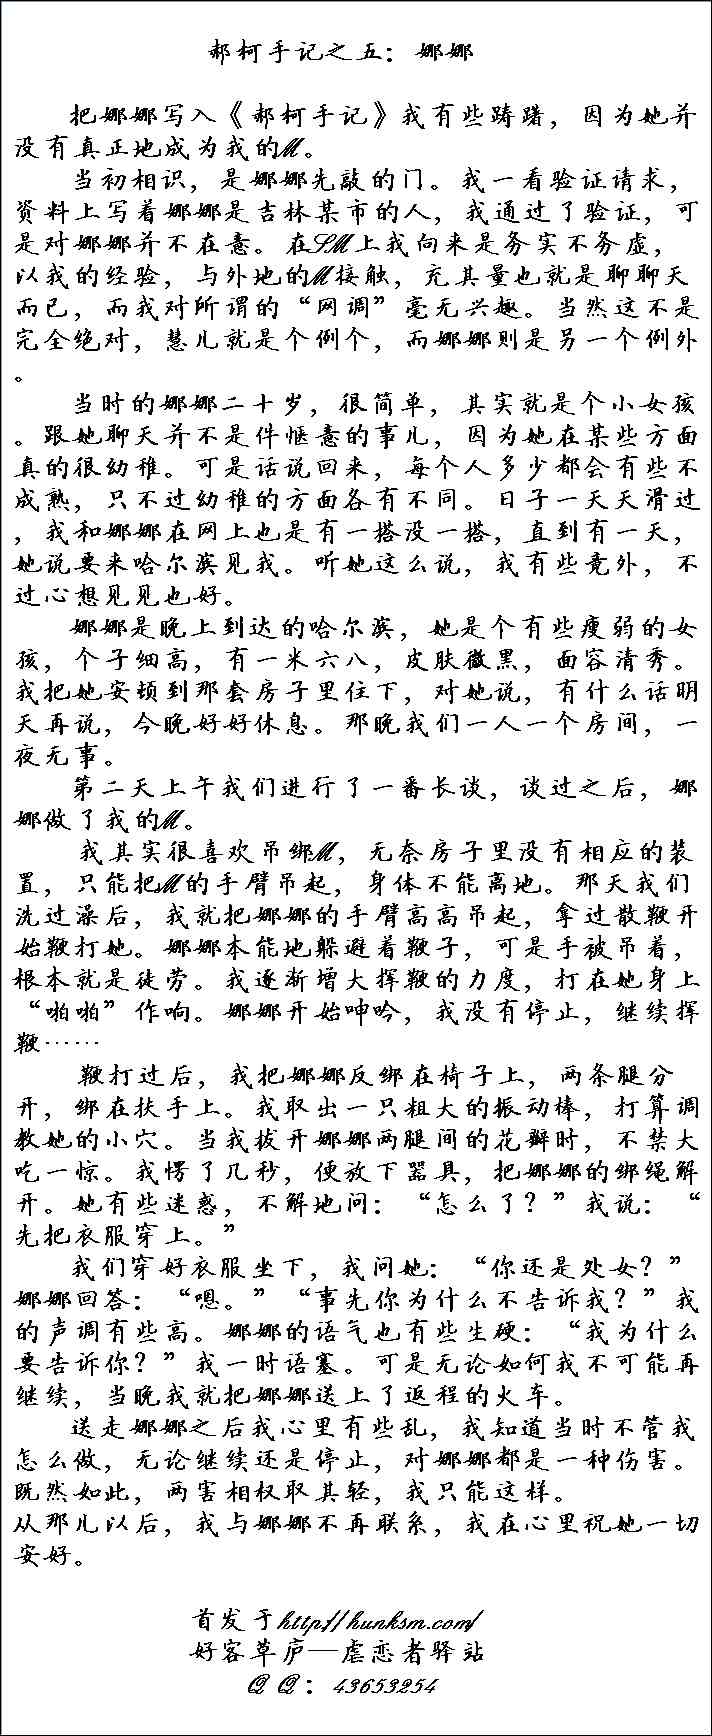 郝柯手记之五：娜娜
把娜娜写入《郝柯手记》我有些踌躇，因为她并
没有真正地成为我的M。
当初相识，是娜娜先敲的门。我一看验证请求，
资料上写着娜娜是吉林某市的人，我通过了验证，可
是对娜娜并不在意。在SM上我向来是务实不务虚，
以我的经验，与外地的M接触，充其量也就是聊聊天
而已，而我对所谓的“网调”毫无兴趣。当然这不是
完全绝对，慧儿就是个例个，而娜娜则是另一个例外
。
当时的娜娜二十岁，很简单，其实就是个小女孩
。跟她聊天并不是件惬意的事儿，因为她在某些方面
真的很幼稚。可是话说回来，每个人多少都会有些不
成熟，只不过幼稚的方面各有不同。日子一天天滑过
，我和娜娜在网上也是有一搭没一搭，直到有一天，
她说要来哈尔滨见我。听她这么说，我有些竟外，不
过心想见见也好。
娜娜是晚上到达的哈尔滨，她是个有些瘦弱的女
孩，个子细高，有一米六八，皮肤微黑，面容清秀。
我把她安顿到那套房子里住下，对她说，有什么话明
天再说，今晚好好休息。那晚我们一人一个房间，一
夜无事。
第二天上午我们进行了一番长谈，谈过之后，娜
娜做了我的M。
我其实很喜欢吊绑M，无奈房子里没有相应的装
置，只能把M的手臂吊起，身体不能离地。那天我们
洗过澡后，我就把娜娜的手臂高高吊起，拿过散鞭开
始鞭打她。娜娜本能地躲避着鞭子，可是手被吊着，
根本就是徒劳。我逐渐增大挥鞭的力度，打在她身上
“啪啪”作响。娜娜开始呻吟，我没有停止，继续挥
鞭……
鞭打过后，我把娜娜反绑在椅子上，两条腿分
开，绑在扶手上。我取出一只粗大的振动棒，打算调
教她的小穴。当我拔开娜娜两腿间的花瓣时，不禁大
吃一惊。我愣了几秒，便放下器具，把娜娜的绑绳解
开。她有些迷惑，不解地问：“怎么了？”我说：“
先把衣服穿上。”
我们穿好衣服坐下，我问她：“你还是处女？”
娜娜回答：“嗯。”“事先你为什么不告诉我？”我
的声调有些高。娜娜的语气也有些生硬：“我为什么
要告诉你？”我一时语塞。可是无论如何我不可能再
继续，当晚我就把娜娜送上了返程的火车。
送走娜娜之后我心里有些乱，我知道当时不管我
怎么做，无论继续还是停止，对娜娜都是一种伤害。
既然如此，两害相权取其轻，我只能这样。
从那儿以后，我与娜娜不再联系，我在心里祝她一切
安好。
首发于http://hunksm.com/
好客草庐—虐恋者驿站
QQ：43653254